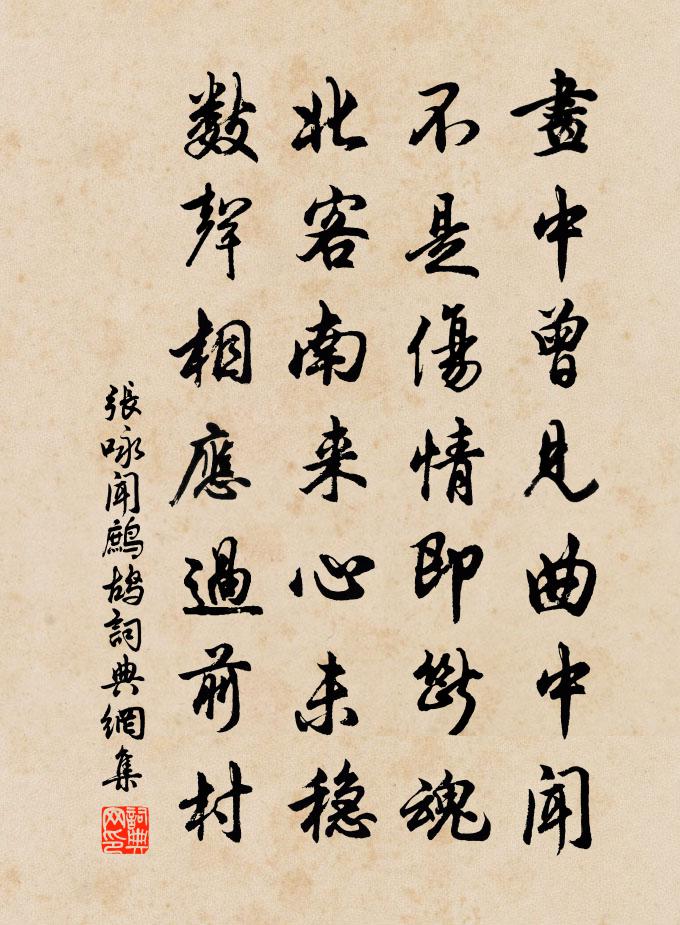 畫中曾見曲中聞
不是傷情即斷魂
北客南来心未穏
數聲相應過前村
張咏聞鷓鴣詞典網集
詞典网印